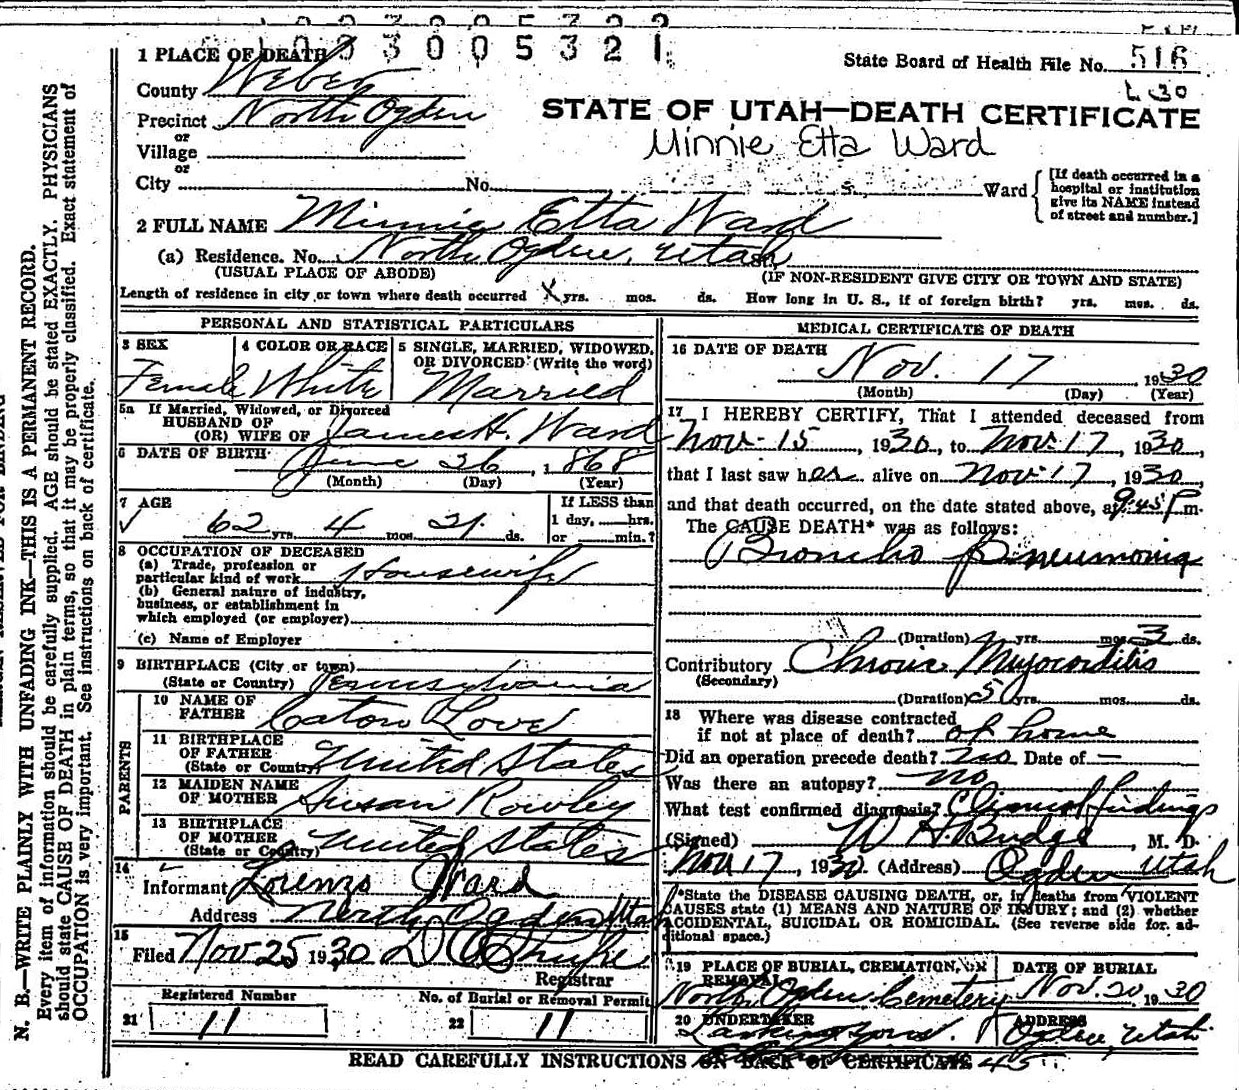 1003005321
State Board of Health File No. 516
L 30
1 PLACE OF DEATH
County Weber
Precinct North Ogden
or
Village
or
City No. Ward
[If death occurred in a hospital or institution give its NAME instead of street and number.]
STATE OF UTAH—DEATH CERTIFICATE
Minnie Etta Ward
2 FULL NAME Minnie Etta Ward
(a) Residence. No. North Ogden, Utah St.
(USUAL PLACE OF ABODE) (IF NON-RESIDENT GIVE CITY OR TOWN AND STATE)
Length of residence in city or town where death occurred X yrs. mos. ds. How long in U. S., if of foreign birth? yrs. mos. ds.
PERSONAL AND STATISTICAL PARTICULARS
3 SEX Female
4 COLOR OR RACE White
5 SINGLE, MARRIED, WIDOWED, OR DIVORCED (Write the word) Married
5a If Married, Widowed, or Divorced
HUSBAND OF
(OR) WIFE OF James H. Ward
6 DATE OF BIRTH June 26, 1868
(Month) (Day) (Year)
7 AGE
62 yrs. 4 mos. 21 ds.
If LESS than
1 day, hrs.
or min.?
8 OCCUPATION OF DECEASED
(a) Trade, profession or
particular kind of work Housewife
(b) General nature of industry,
business, or establishment in
which employed (or employer)
(c) Name of Employer
9 BIRTHPLACE (City or town)
(State or Country) Pennsylvania
PARENTS
10 NAME OF
FATHER Caton Love
11 BIRTHPLACE
OF FATHER
(State or Country) United States
12 MAIDEN NAME
OF MOTHER Susan Rowley
13 BIRTHPLACE
OF MOTHER
(State or Country) United States
14
Informant Lorenzo Ward
Address North Ogden Utah
15
Filed Nov 25 1930
Registrar
Registered Number
21 11
No. of Burial or Removal Permit
22 11
MEDICAL CERTIFICATE OF DEATH
16 DATE OF DEATH
Nov. 17 1930
(Month) (Day) (Year)
17 I HEREBY CERTIFY, That I attended deceased from
Nov. 15, 1930, to Nov. 17, 1930,
that I last saw her alive on Nov. 17, 1930,
and that death occurred, on the date stated above, at 9:45 P m.
The CAUSE DEATH* was as follows:
Broncho Pneumonia
(Duration) yrs. mos. 3 ds.
Contributory Chronic Myocarditis
(Secondary)
(Duration) 5 yrs. mos. ds.
18 Where was disease contracted
if not at place of death? at home
Did an operation precede death? no Date of —
Was there an autopsy? no
What test confirmed diagnosis? Clinical findings
(Signed) W H. Budge, M. D.
Nov 17, 1930 (Address) Ogden Utah
*State the DISEASE CAUSING DEATH, or, in deaths from VIOLENT
CAUSES state (1) MEANS AND NATURE OF INJURY; and (2) whether
ACCIDENTAL, SUICIDAL OR HOMICIDAL. (See reverse side for ad-
ditional space.)
19 PLACE OF BURIAL, CREMATION, OR
REMOVAL
North Ogden Cemetery
DATE OF BURIAL
Nov. 20, 1930
20 UNDERTAKER
ADDRESS
Ogden, Utah
READ CAREFULLY INSTRUCTIONS ON BACK OF CERTIFICATE 45
N. B.—WRITE PLAINLY WITH UNFADING INK—THIS IS A PERMANENT RECORD.
Every item of information should be carefully supplied. AGE should be stated EXACTLY. PHYSICIANS
should state CAUSE OF DEATH in plain terms, so that it may be properly classified. Exact statement of
OCCUPATION is very important. See instructions on back of certificate.